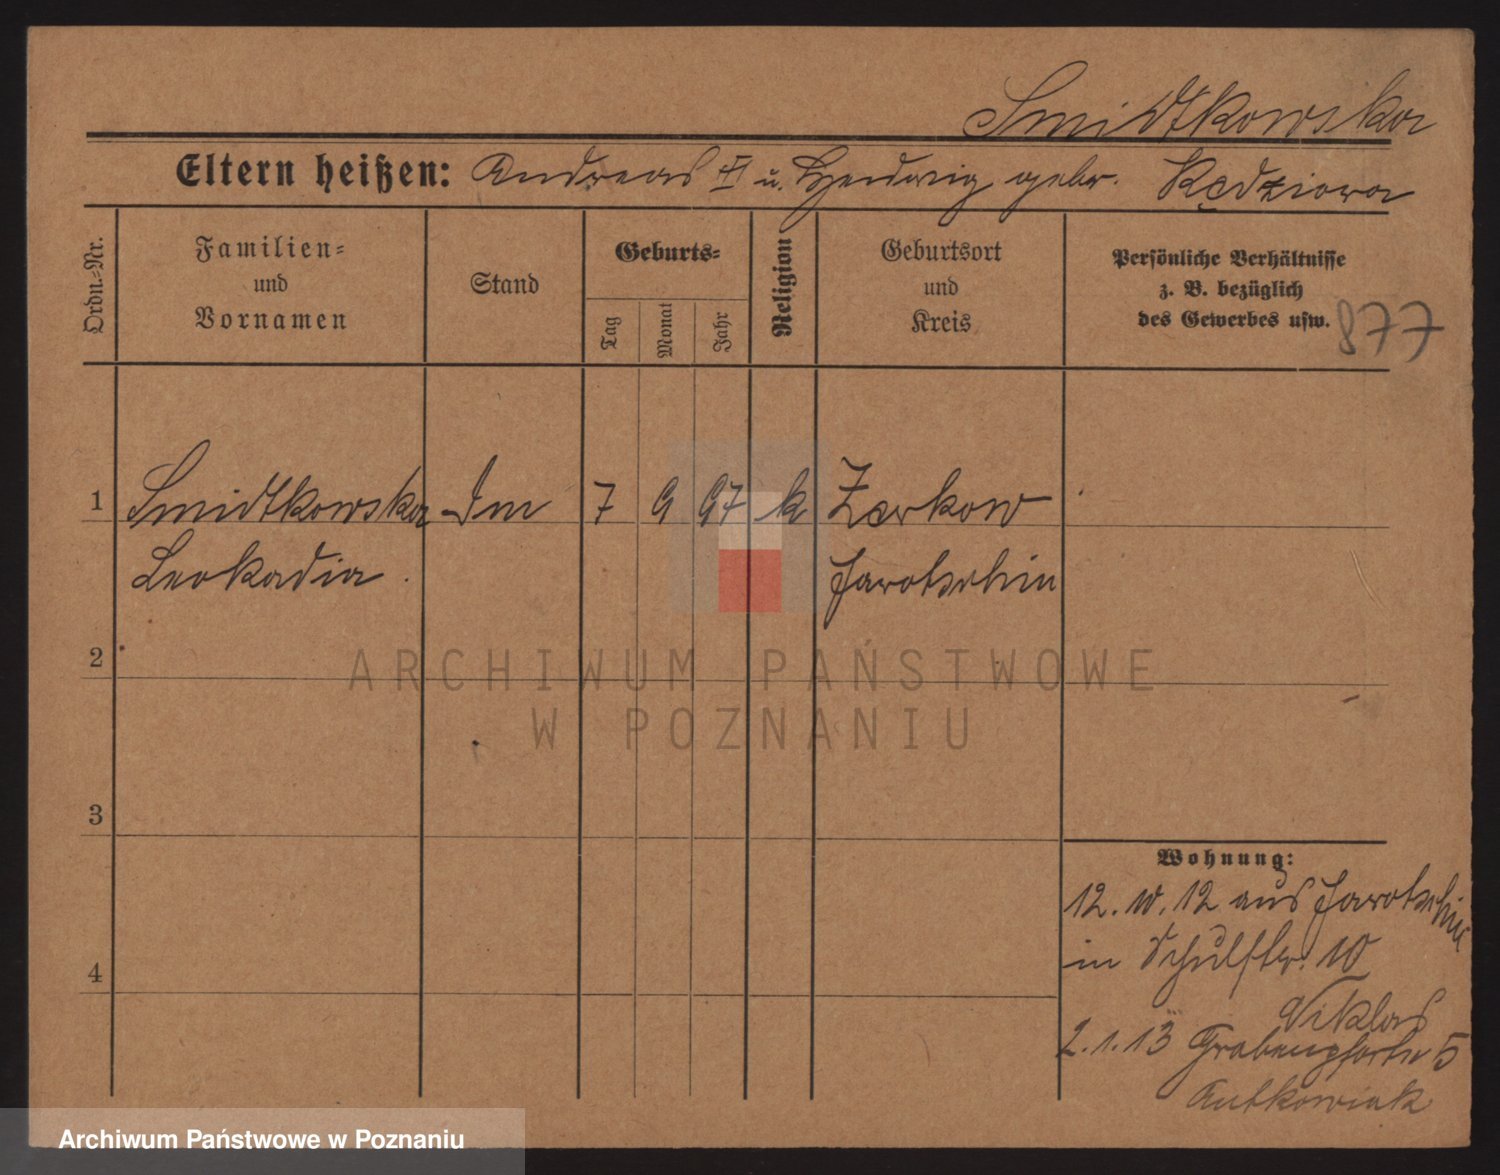 Smidtkowska
Eltern heißen: Andreas II u. Hedwig gebr. Kędziora
Ordn.-Nr.
Familien-
und
Vornamen
Stand
Geburts-
Tag
Monat
Jahr
Religion
Geburtsort
und
Kreis
Persönliche Verhältnisse
z. B. bezüglich
des Gewerbes usw.
877
1 Smidtkowska 7 9 97 k Zerkow
Leokadia Jarotschin
2
3
4
Wohnung:
12. 10. 12 aus Jarotschin
in Schulstr. 10
2. 1. 13 Grabenpforte 5
ARCHIWUM PAŃSTWOWE
W POZNANIU
Archiwum Państwowe w Poznaniu